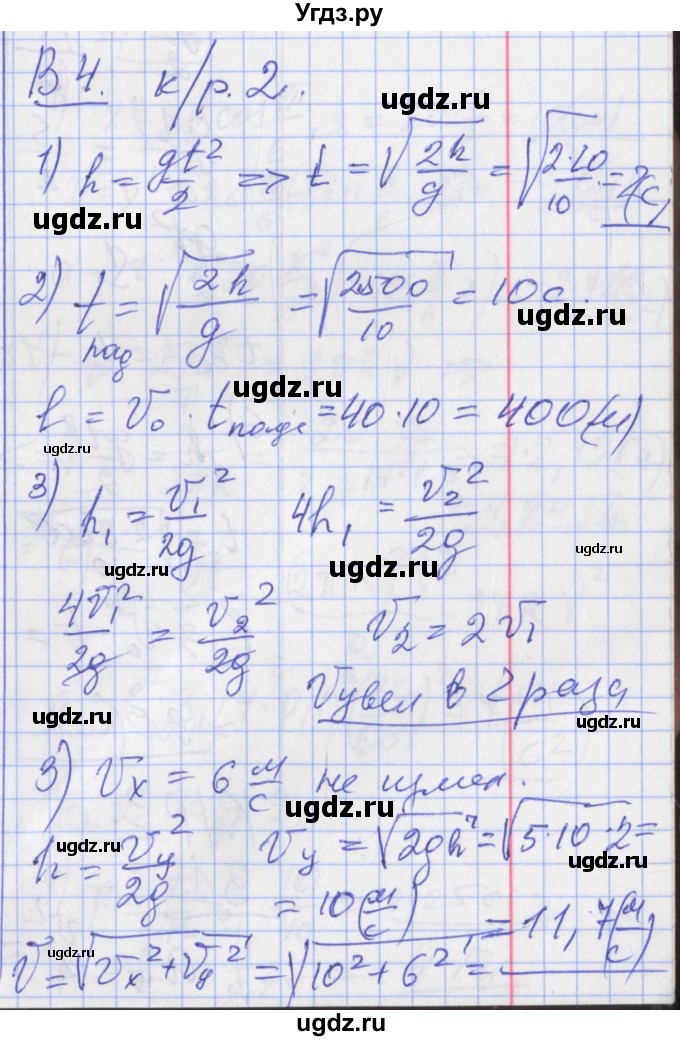 Угдз.ру
В 4. к/р. 2.
ugdz.ru
1) h = gt²/2 => t = √(2h/g) = √(2·20/10) = 2(с)
ugdz.ru ugdz.ru
2) tпад = √(2h/g) = √(2500/10) = 10с.
ugdz.ru ugdz.ru
ugdz.ru
l = V₀ · tпаде = 40·10 = 400(м)
ugdz.ru
3) h₁ = V₁²/2g 4h₁ = V₂²/2g
ugdz.ru ugdz.ru ugdz.ru
4V₁²/2g = V₂²/2g V₂ = 2V₁
ugdz.ru ugdz.ru
V увел в 2 раза
ugdz.ru ugdz.ru
3) Vx = 6 м/с не измен.
ugdz.ru
h = Vy²/2g Vy = √(2gh) = √(5·10·2) =
ugdz.ru ugdz.ru
= 10(м/с)
V = √(Vx²+Vy²) = √(10²+6²) = = 11,7(м/с)
ugdz.ru ugdz.ru
ugdz.ru